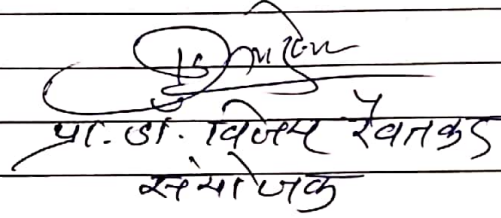 प्रा. डॉ. विजय रेवतकर
संयोजक